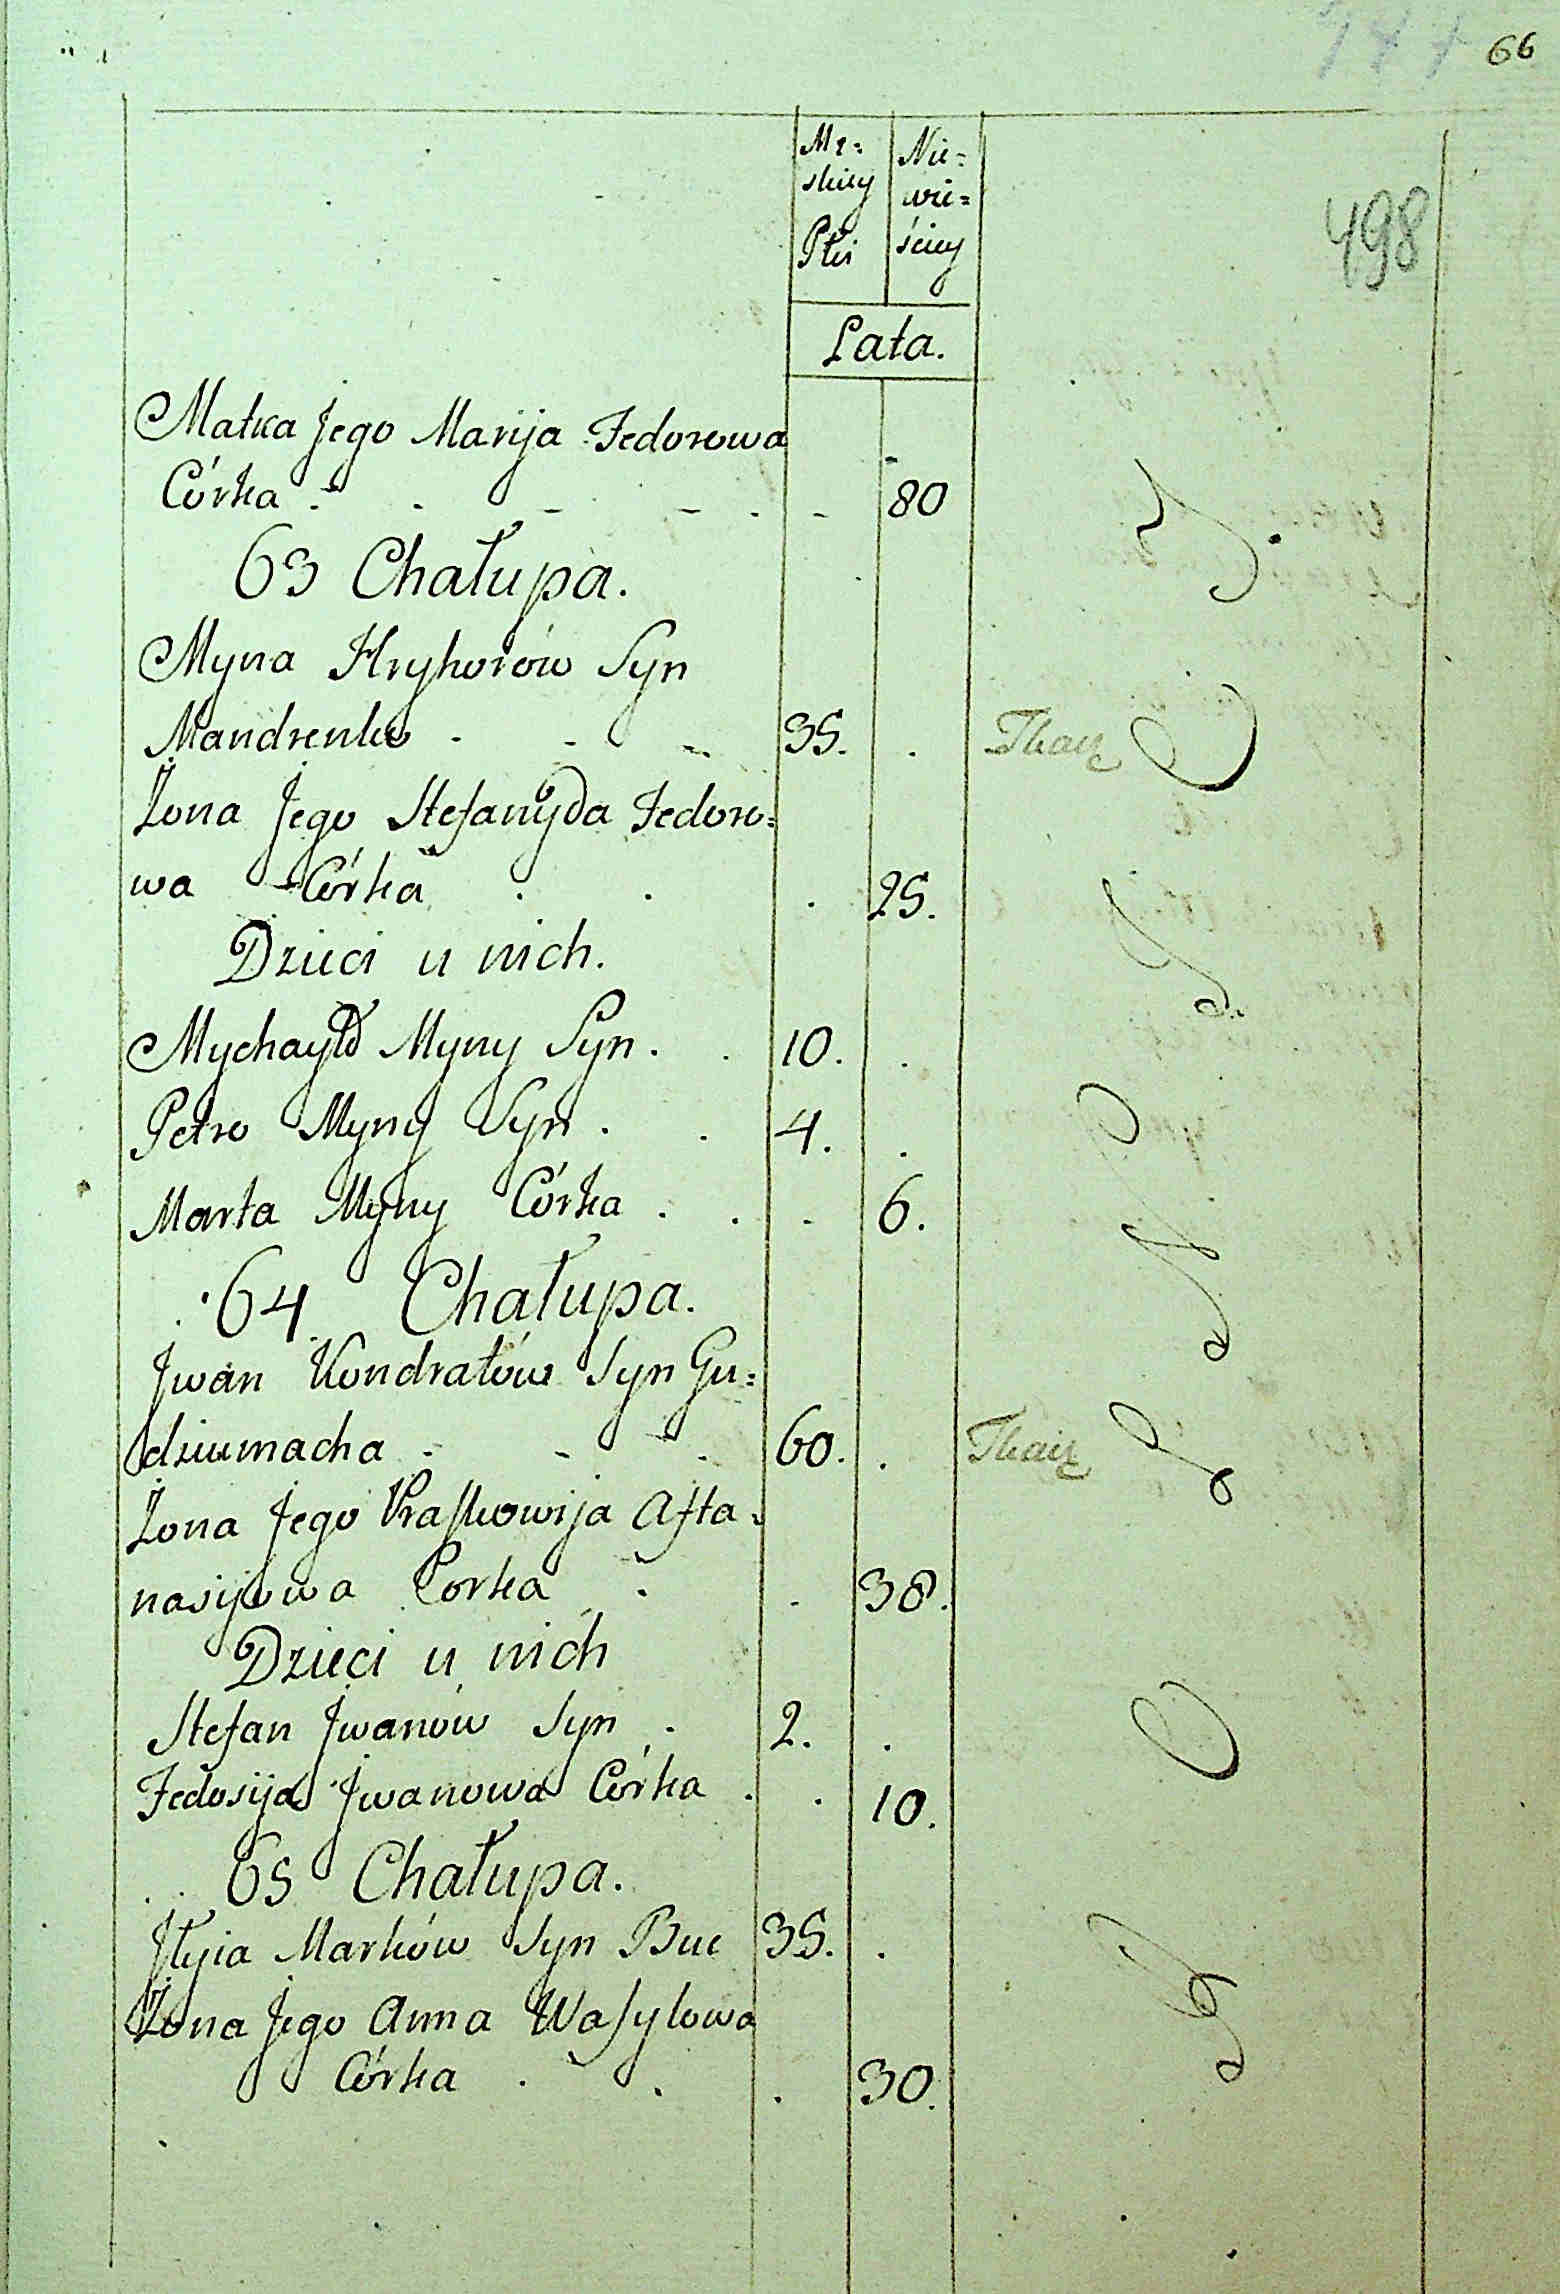 66
498
Mę= Nie=
skiey wie=
Płci ściey
Lata.
Matka Jego Marija Fedorowa
Córka . . - - . - 80
63 Chałupa.
Myna Hryhorów Syn
Mandrenko - - - 35. . Tkacz
Żona Jego Stefanyda Fedoro=
wa Córka . . . 25.
Dzieci u nich.
Mychayło Myny Syn . . 10. .
Petro Myny Syn . . 4. .
Marta Myny Córka . . . 6.
64 Chałupa.
Jwan Kondratów Syn Gu=
dziumacha - - . 60. . Tkacz
Żona Jego Praskowija Afta=
nasijowa Corka . . 38.
Dzieci u nich
Stefan Jwanów Syn . 2. .
Fedosija Jwanowa Córka . . 10.
65 Chałupa.
Jłyia Marków Syn Buc 35. .
Żona Jego Anna Wasylowa
Córka . . . 30.